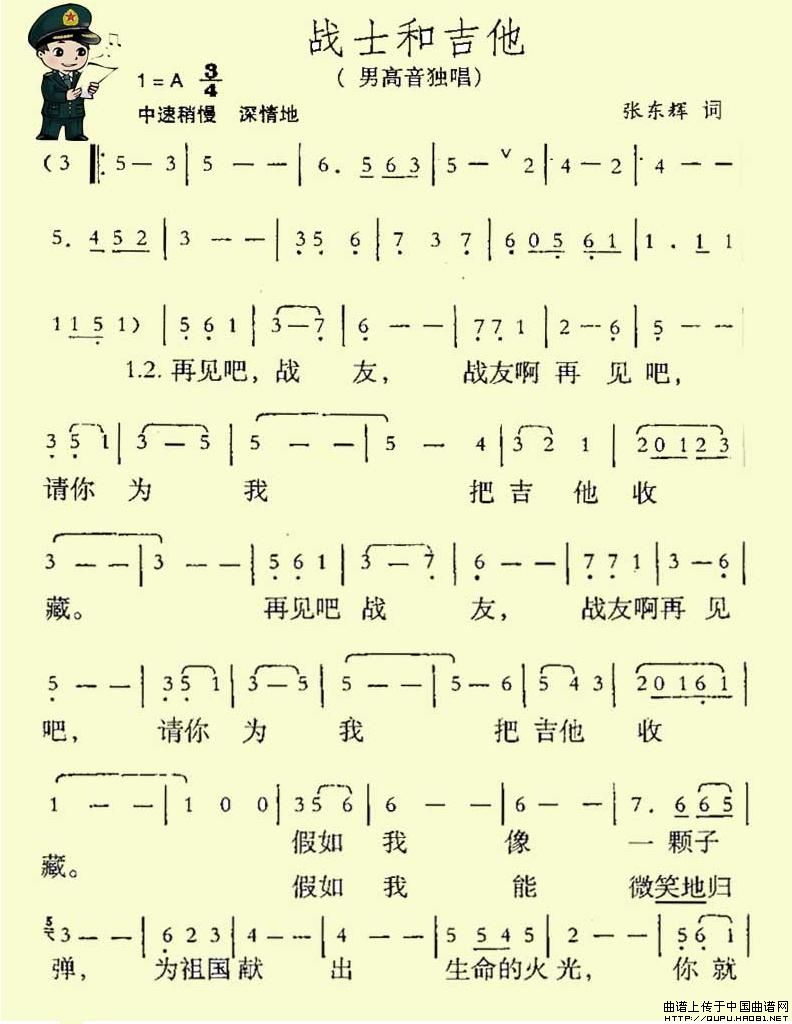 战士和吉他
(男高音独唱)
1=A 3/4
中速稍慢 深情地
张东辉 词
(3 ‖: 5 — 3 | 5 — — | 6. 5 6 3 | 5 — ∨ 2 | 4 — 2 | 4 — —
5. 4 5 2 | 3 — — | 3 5 6 | 7 3 7 | 6 0 5 6 1 | 1. 1 1
1 1 5 1) | 5 6 1 | 3 — 7 | 6 — — | 7 7 1 | 2 — 6 | 5 — —
1.2. 再见吧，战 友， 战友啊 再 见 吧，
3 5 1 | 3 — 5 | 5 — — | 5 — 4 | 3 2 1 | 2 0 1 2 3
请你 为 我 把 吉 他 收
3 — — | 3 — — | 5 6 1 | 3 — 7 | 6 — — | 7 7 1 | 3 — 6 |
藏。 再见吧 战 友， 战友啊再 见
5 — — | 3 5 1 | 3 — 5 | 5 — — | 5 — 6 | 5 4 3 | 2 0 1 6 1 |
吧， 请你 为 我 把 吉他 收
1 — — | 1 0 0 | 3 5 6 | 6 — — | 6 — — | 7. 6 6 5 |
假如 我 像 一 颗子
藏。
假如 我 能 微笑地归
5 3 — — | 6 2 3 | 4 — — | 4 — — | 5 5 4 5 | 2 — — | 5 6 1 |
弹， 为祖国献 出 生命的火光， 你 就
曲谱上传于中国曲谱网
HTTP://QUPU.HAO81.NET